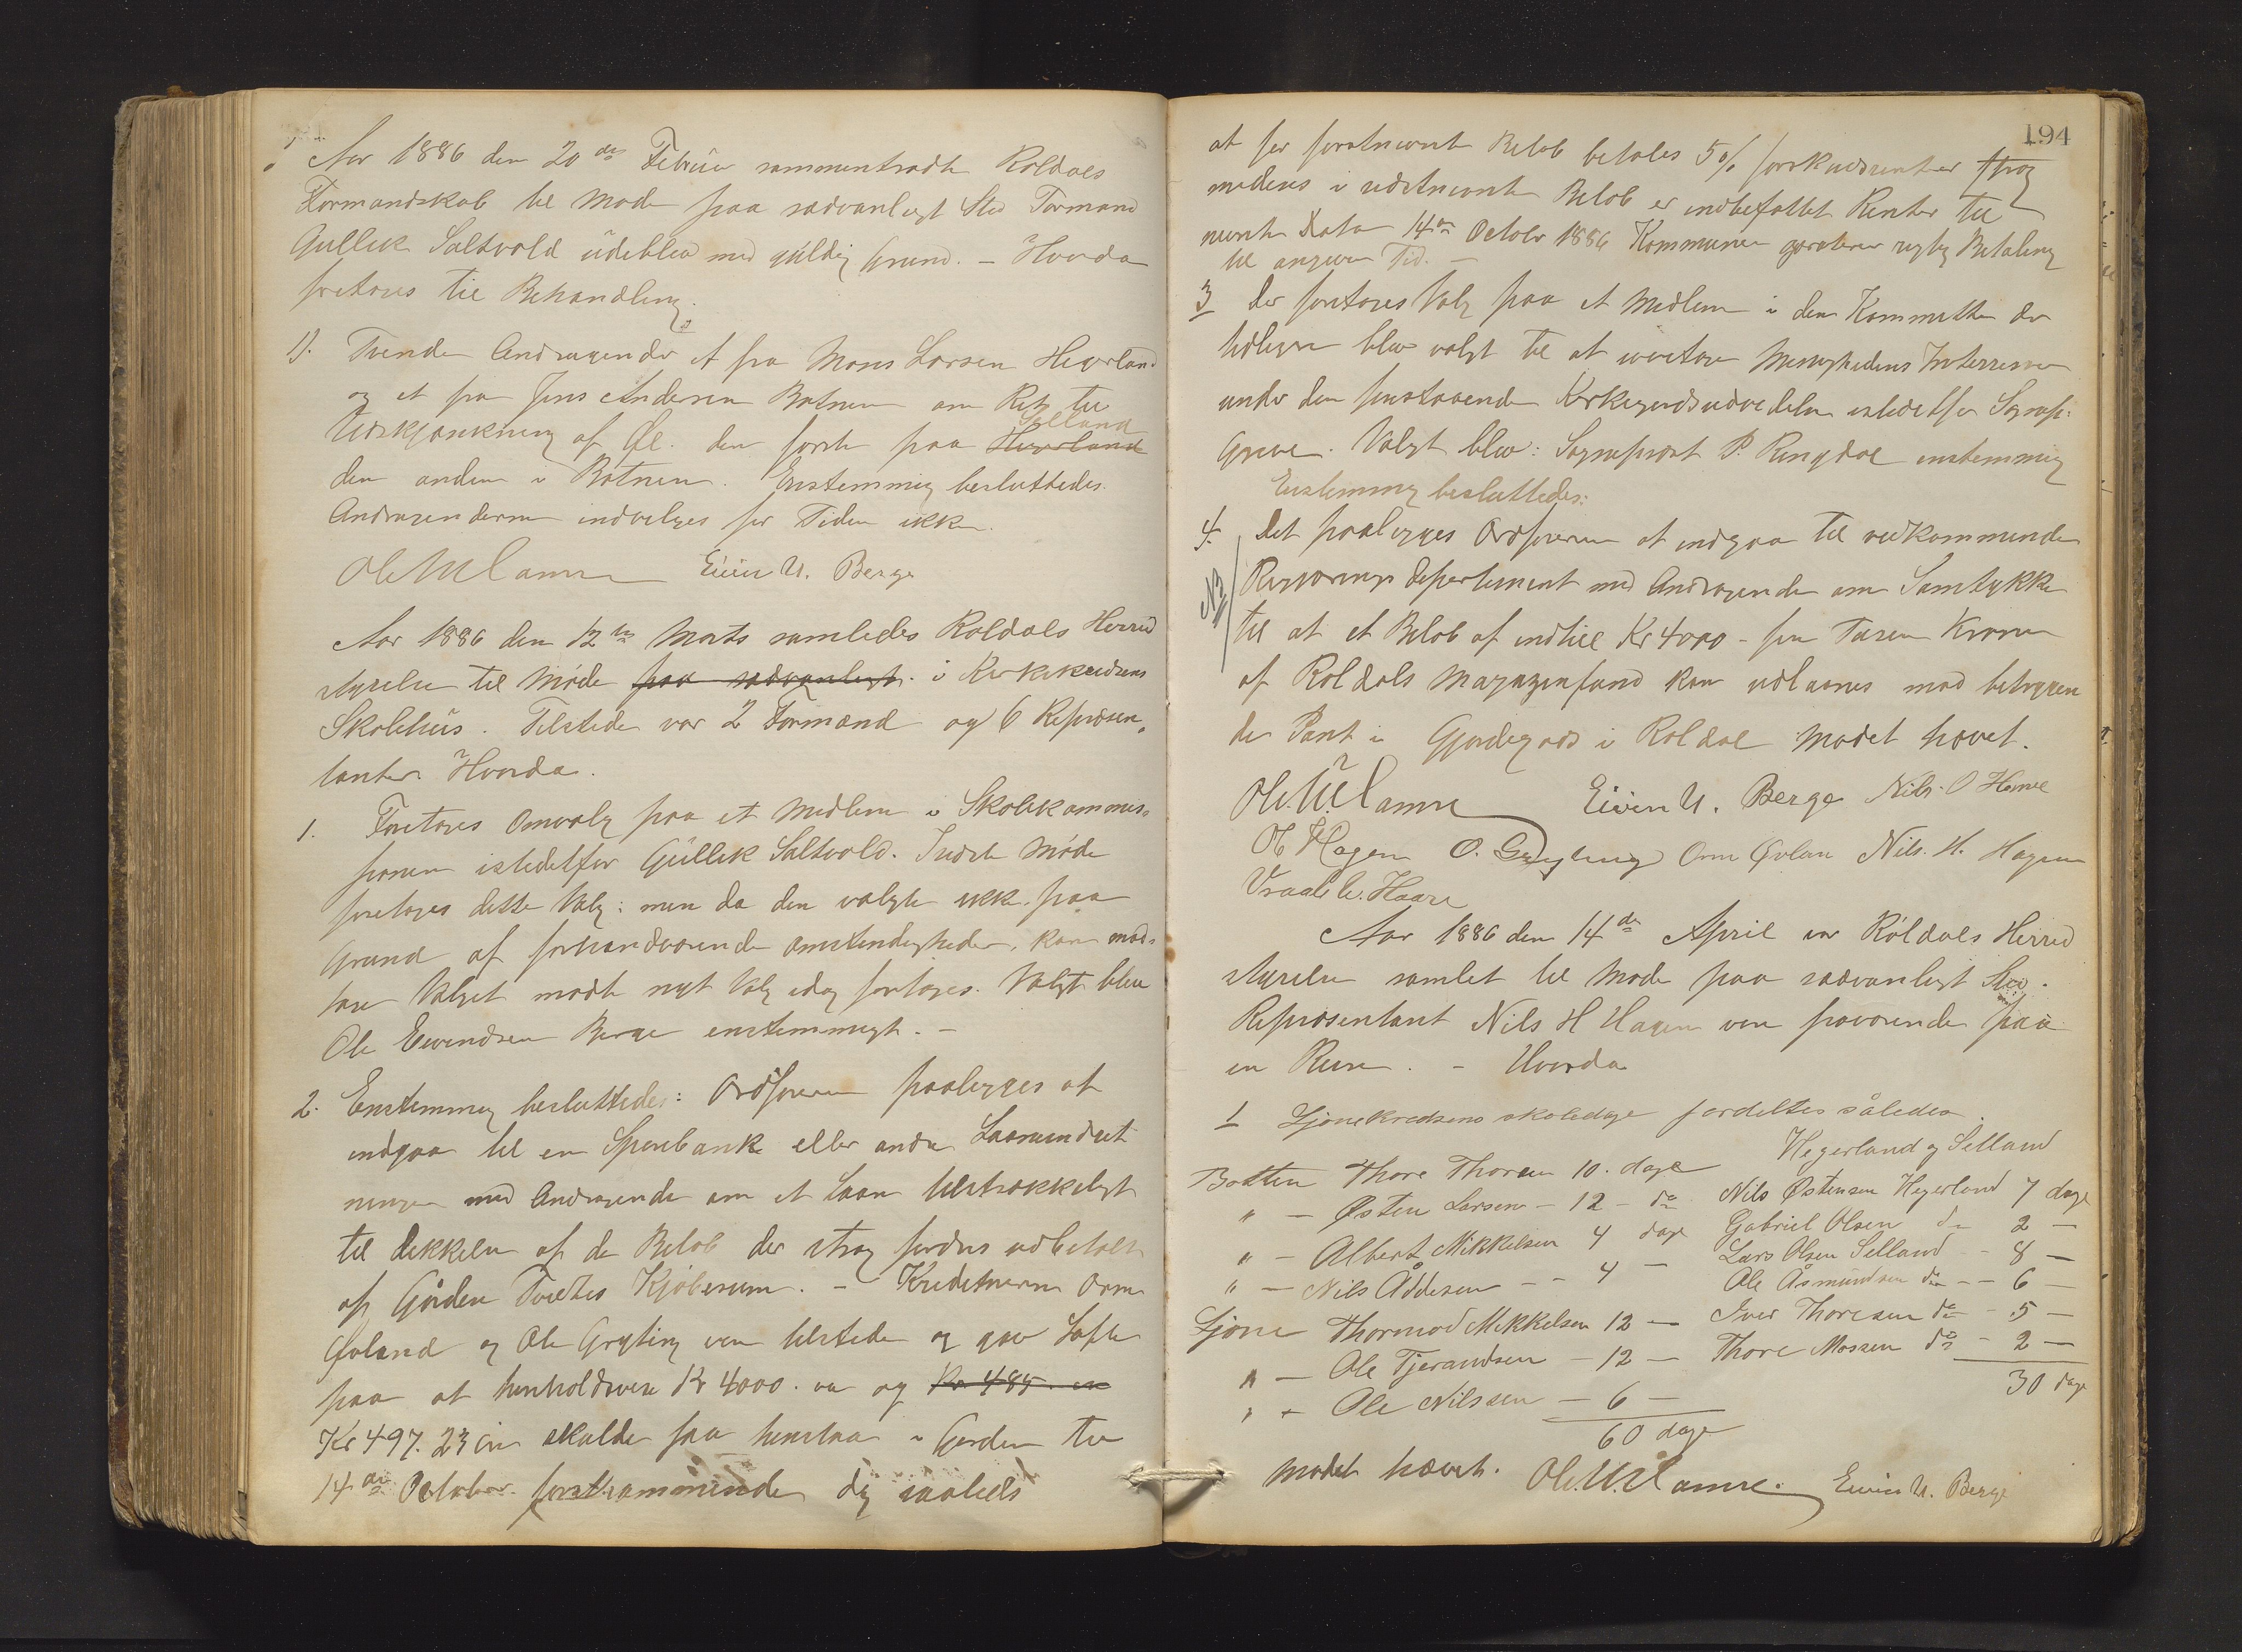 Aar 1886 den 20de Februar sammentraadte Røldals
Formandskab til Møde paa sædvanligt Sted Formand
Gullik Saltvold udeblev med gyldig Grund. – Hvorda
foretoges til Behandling.
1). Tvende Andragender et fra Mons Larsen Hegerland
og et fra Jens Andersen Botnen om Ret til
Selland
Udskjænkning af Øl. den første paa Hegerland
den anden i Botnen. Enstemmig besluttedes
Andragenderne indvilges for Tiden ikke.
Ole M Hamre Eivin U. Berge
Aar 1886 den 12te Marts samledes Røldals Herred
styrelse til Møde paa sædvanligt i Kirkekredsens
Skolehus. Tilstede var 2 Formænd og 6 Repræsen-
tanter. Hvorda.
1. Foretoges Omvalg paa et Medlem i Skolekommis-
sionen istedetfor Gullik Saltvold. I sidste Møde
foretoges dette Valg: men da den valgte ikke paa
Grund af forhaandværende Omstændigheder, kan mod-
tage Valget maatte nyt Valg idag foretages. Valgt blev
Ole Eivendsen Berge enstemmigt. –
2. Enstemmig besluttedes: Ordføreren paalægges at
indgaa til en Sparebank eller andre Laaneindret
ninger med Andragende om et Laan tilstrækkeligt
til Dækkelse af de Beløb der strax fordres udbetalt
af Gården Tvedtes Kjøbesum. – Kreditorerne Orm
Øvland og Ole Gryting var tilstede og gav Løfte
paa at henholdsvis Kr 4000. og Kr 485
Kr 497. 23 øre skulde faa henstaa i Garden til
14de October førstkommende dog saaledes
194
at for førstnævnte Beløb betales 5% forskudsrenter strax
medens i sidstnævnte Beløb er indbefattet Renter til
nævnte Dato 14de October 1886 Kommunen garanterer rigtig Betaling
til angiven Tid. –
3 Der foretoges Valg paa et Medlem i den Kommitte der
tidligere blev valgt til at ivaretage Menighedens Interesser
under den forestaaende Kirkegaardsudvidelse istedetfor Sogneprest
Greve. Valgt blev: Sogneprest P. Ringdal enstemmig
Enstemmig besluttedes:
4. Det paalægges Ordføreren at indgaa til vedkommende
NB
Regjerings departement med Andragende om Samtykke
til at et Beløb af indtil Kr 4000 – fire Tusen Kroner
af Røldals Magazinfond kan udlaanes mod betryggen
de Pant i Gjordegods i Røldal Mødet hævet.
Ole. M Hamre Eivin U. Berge Nils. O Hamre
O H Hagen O. Gryting Orm Øvlan Nils. H. Hagen
Vraal L. Haare
Aar 1886 den 14de April var Røldals Herred
styrelse samlet til Møde paa sædvanligt Sted.
Repræsentant Nils H Hagen var fraværende paa
en Reise. – Hvorda
1 Ljonekredsens skoledage fordeltes således.
Hegerland og Selland
Botten Thore Thorsen 10. dage
" – Østen Larsen – 12 – do Nils Østensen Hegerland 7 dage
" – Albert Mikkelsen 4 dage Gabriel Olsen do 2 –
" – Nils Åddesen – – 4 – Lars Olsen Selland – 8 –
Ole Åsmundsen do – – 6 –
Ljone Thormod Mikkelsen 12 – Iver Thoresen do – 5 –
" – Ole Tjerandsen – 12 – Thore Mossen do – 2 –
" – Ole Nilssen – 6 – 30 dage
60 dage
Mødet hævet. Ole. M. Hamre. Eivin U. Berge